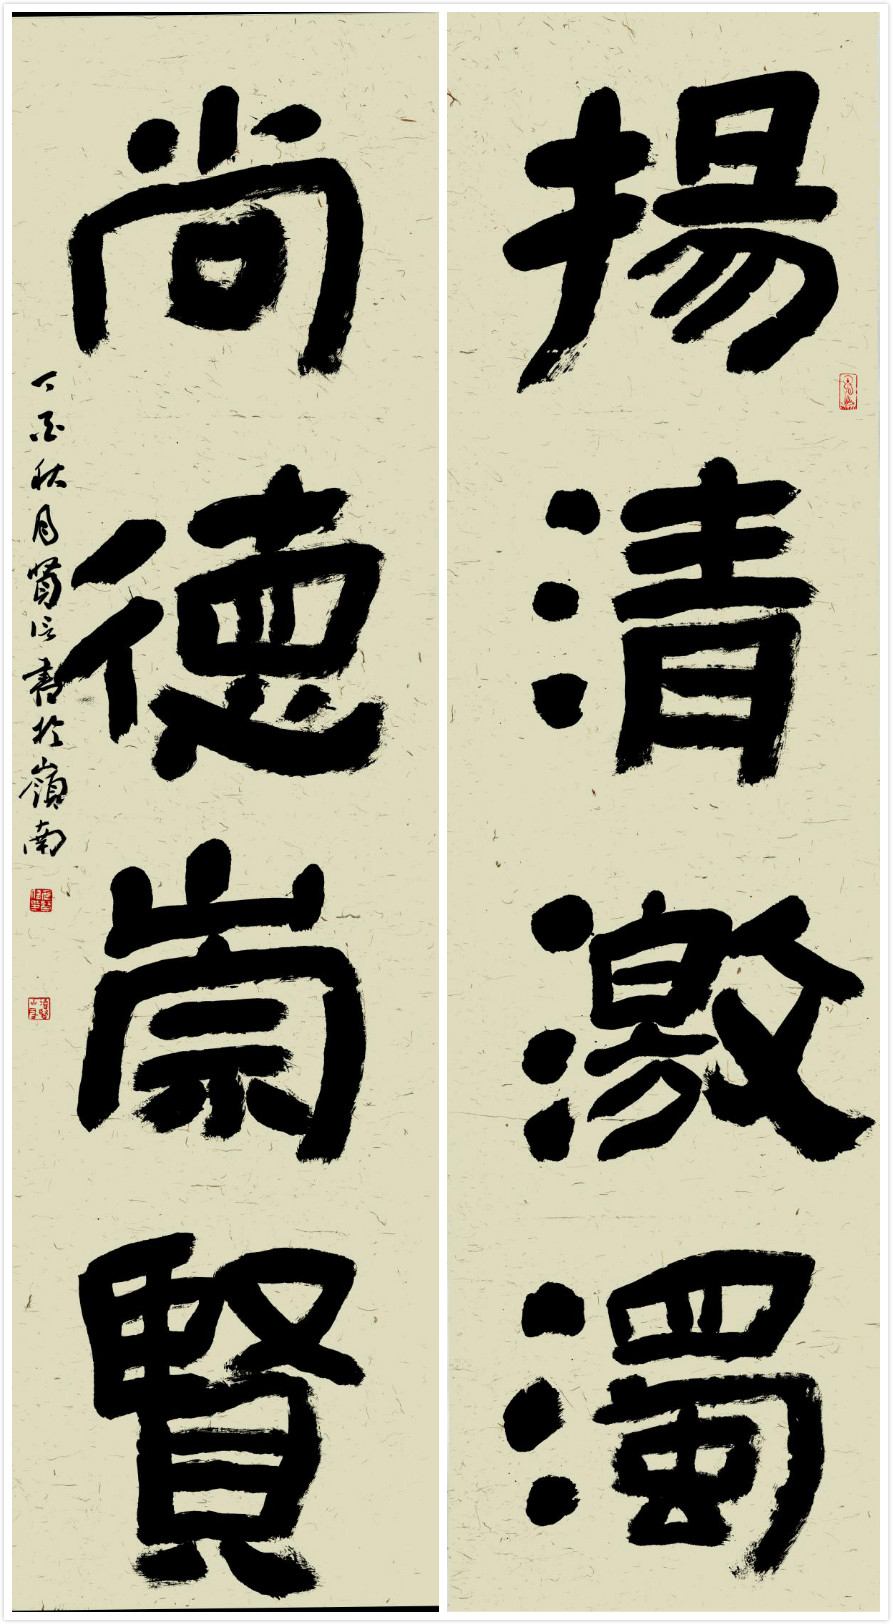 揚清激濁
尚德崇賢
丁酉秋月賢信書於嶺南